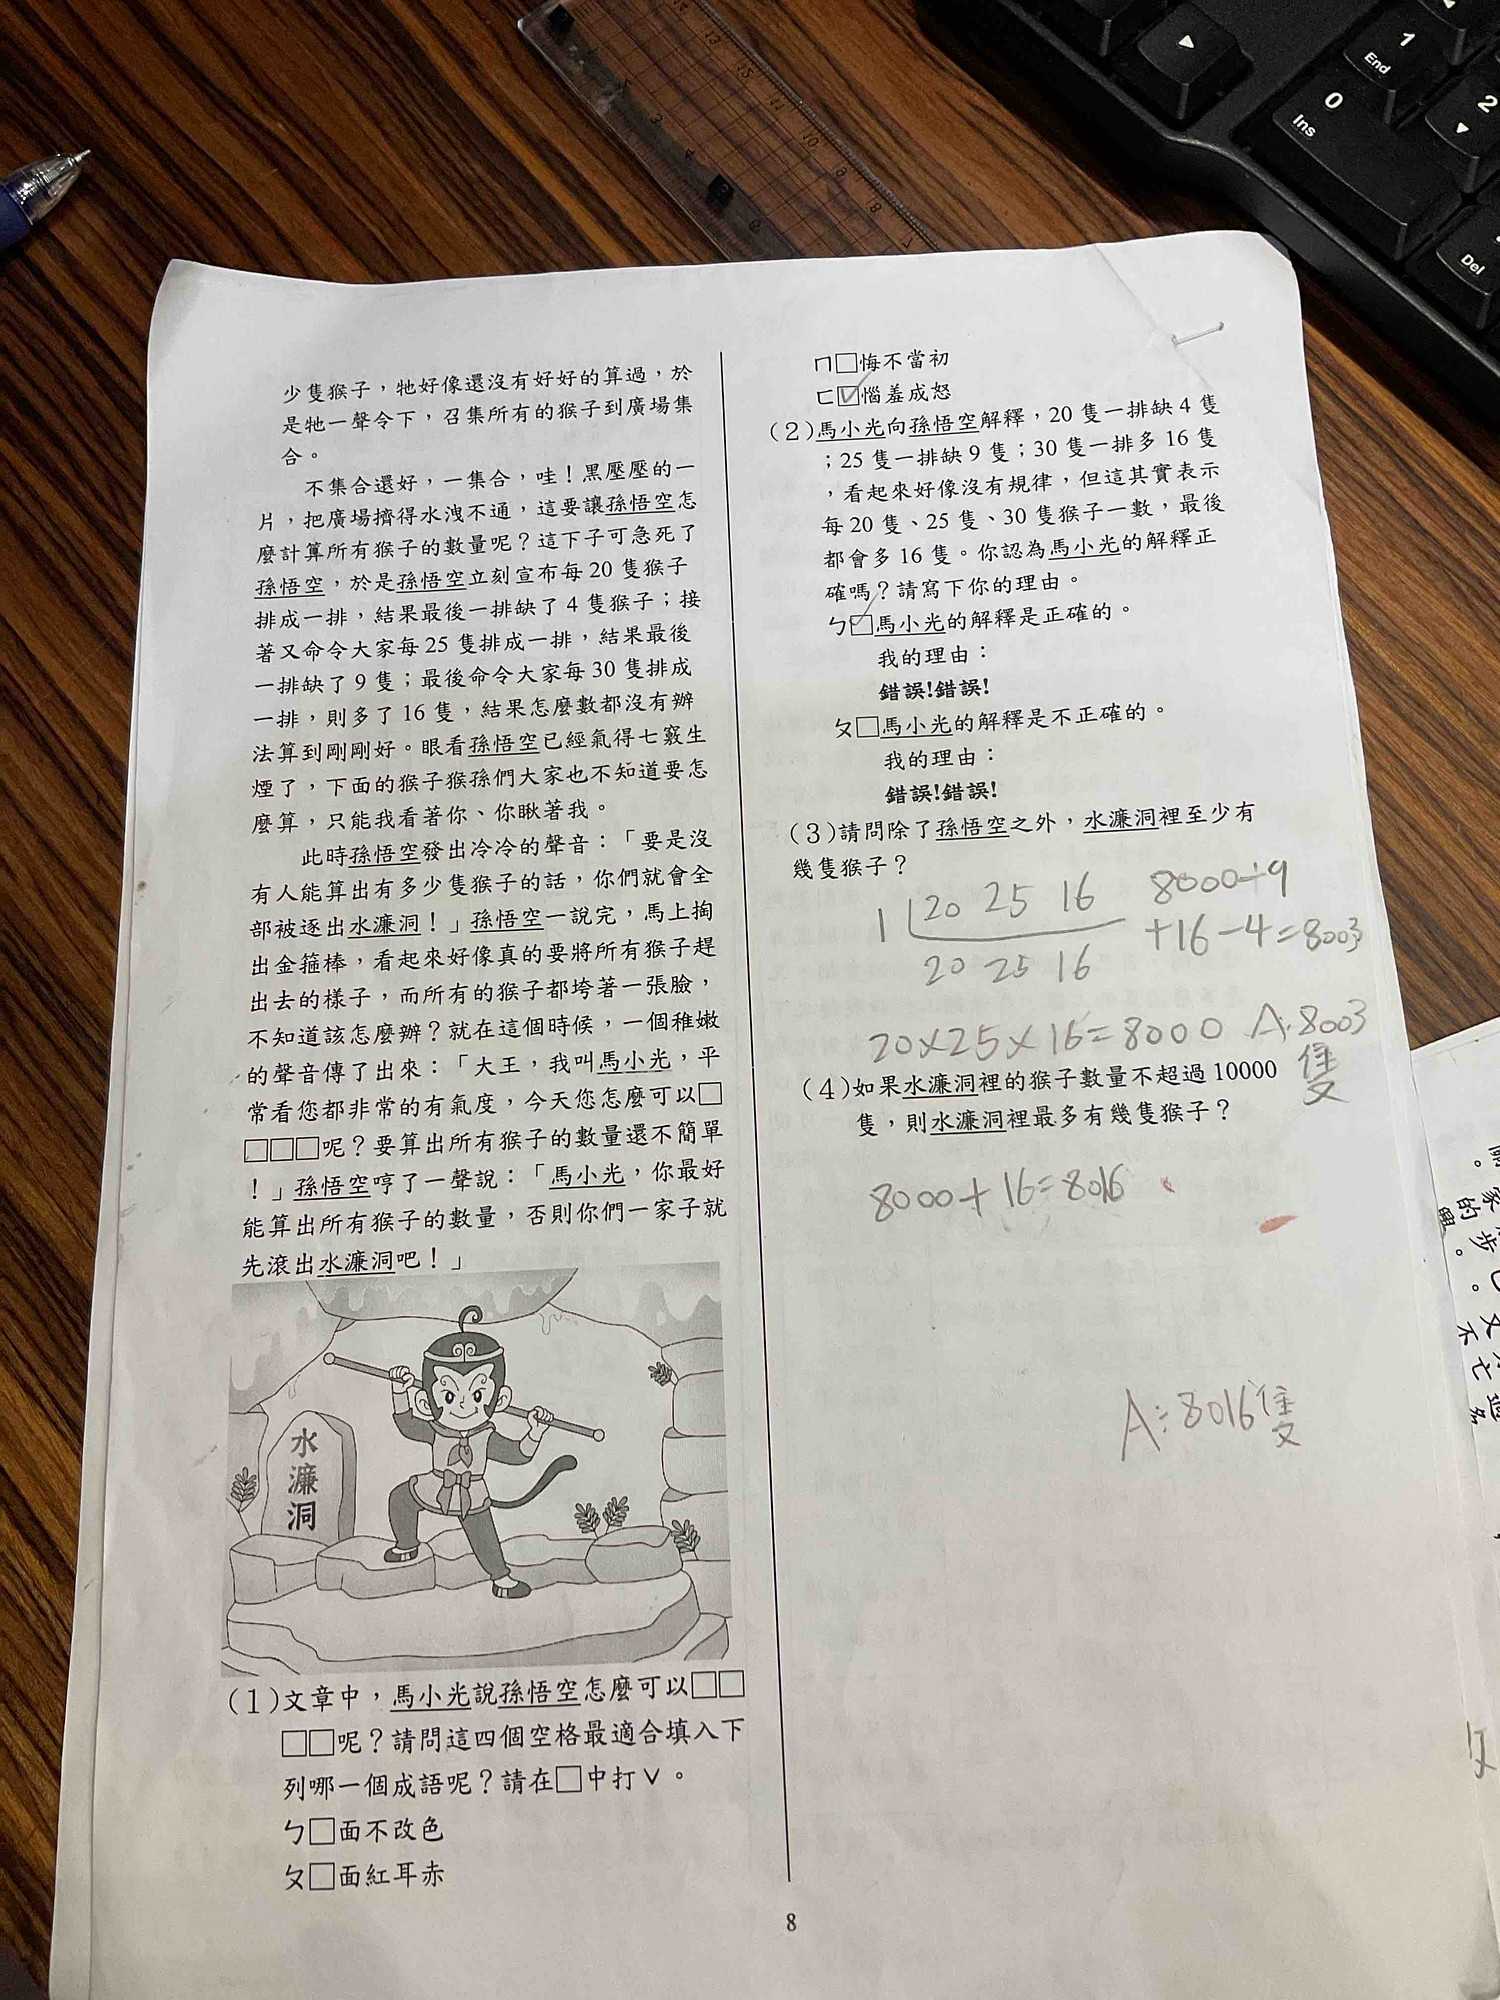 少隻猴子，牠好像還沒有好好的算過，於
是牠一聲令下，召集所有的猴子到廣場集
合。
不集合還好，一集合，哇！黑壓壓的一
片，把廣場擠得水洩不通，這要讓孫悟空怎
麼計算所有猴子的數量呢？這下子可急死了
孫悟空，於是孫悟空立刻宣布每20隻猴子
排成一排，結果最後一排缺了4隻猴子；接
著又命令大家每25隻排成一排，結果最後
一排缺了9隻；最後命令大家每30隻排成
一排，則多了16隻，結果怎麼數都沒有辦
法算到剛剛好。眼看孫悟空已經氣得七竅生
煙了，下面的猴子猴孫們大家也不知道要怎
麼算，只能我看著你、你瞅著我。
此時孫悟空發出冷冷的聲音：「要是沒
有人能算出有多少隻猴子的話，你們就會全
部被逐出水濂洞！」孫悟空一說完，馬上掏
出金箍棒，看起來好像真的要將所有猴子趕
出去的樣子，而所有的猴子都垮著一張臉，
不知道該怎麼辦？就在這個時候，一個稚嫩
的聲音傳了出來：「大王，我叫馬小光，平
常看您都非常的有氣度，今天您怎麼可以□
□□□呢？要算出所有猴子的數量還不簡單
！」孫悟空哼了一聲說：「馬小光，你最好
能算出所有猴子的數量，否則你們一家子就
先滾出水濂洞吧！」
水濂洞
(1)文章中，馬小光說孫悟空怎麼可以□□
□□呢？請問這四個空格最適合填入下
列哪一個成語呢？請在□中打∨。
ㄅ□面不改色
ㄆ□面紅耳赤
ㄇ□悔不當初
ㄈ☑惱羞成怒
(2)馬小光向孫悟空解釋，20隻一排缺4隻
；25隻一排缺9隻；30隻一排多16隻
，看起來好像沒有規律，但這其實表示
每20隻、25隻、30隻猴子一數，最後
都會多16隻。你認為馬小光的解釋正
確嗎？請寫下你的理由。
ㄅ☑馬小光的解釋是正確的。
我的理由：
錯誤!錯誤!
ㄆ□馬小光的解釋是不正確的。
我的理由：
錯誤!錯誤!
(3)請問除了孫悟空之外，水濂洞裡至少有
幾隻猴子？
1 20 25 16
20 25 16
8000÷9
+16-4=8003
20×25×16=8000 A:8003
隻
(4)如果水濂洞裡的猴子數量不超過10000
隻，則水濂洞裡最多有幾隻猴子？
8000+16=8016
A:8016隻
8
1
End
0
Ins
2
Del